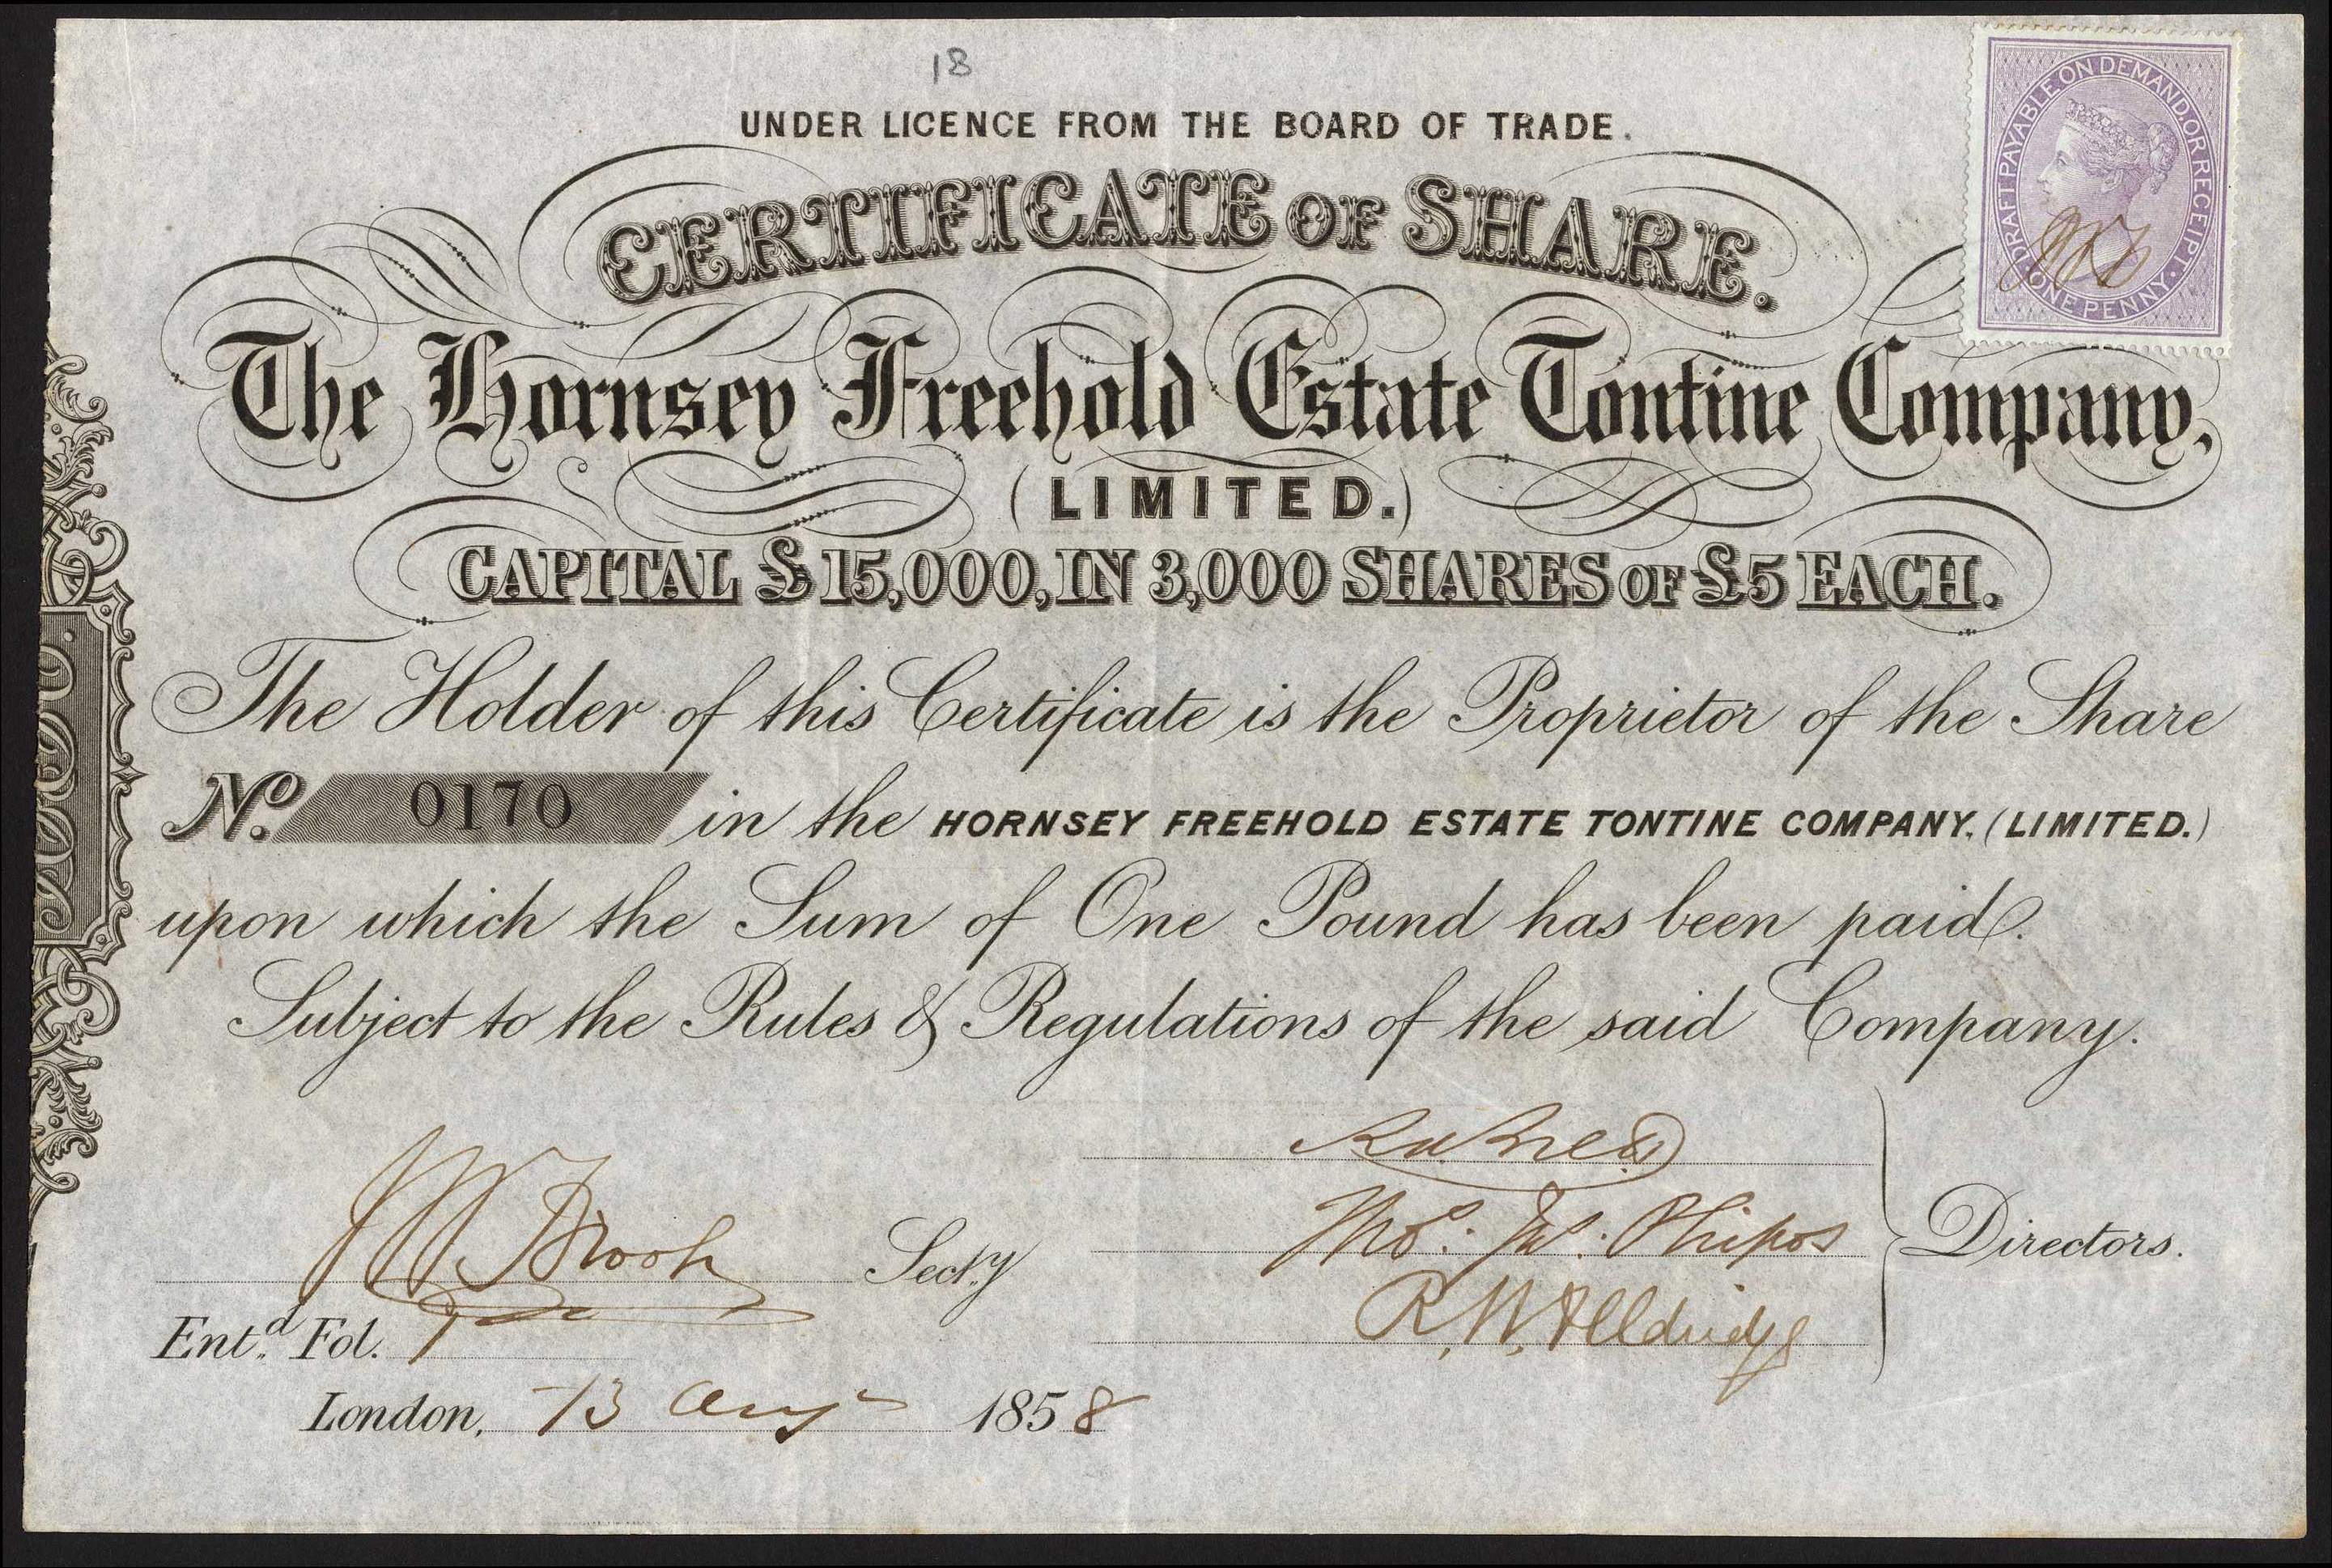 18
UNDER LICENCE FROM THE BOARD OF TRADE.
DRAFT PAYABLE ON DEMAND, OR RECEIPT.
ONE PENNY
CERTIFICATE OF SHARE.
The Hornsey Freehold Estate Tontine Company,
(LIMITED.)
CAPITAL £15,000, IN 3,000 SHARES OF £5 EACH.
The Holder of this Certificate is the Proprietor of the Share
No. 0170 in the HORNSEY FREEHOLD ESTATE TONTINE COMPANY, (LIMITED.)
upon which the Sum of One Pound has been paid.
Subject to the Rules & Regulations of the said Company.
Thos. Wm. Phipos
Directors.
Brook Secty
R. W. Alldridge
Entd. Fol. 1
London, 13 Aug 1858